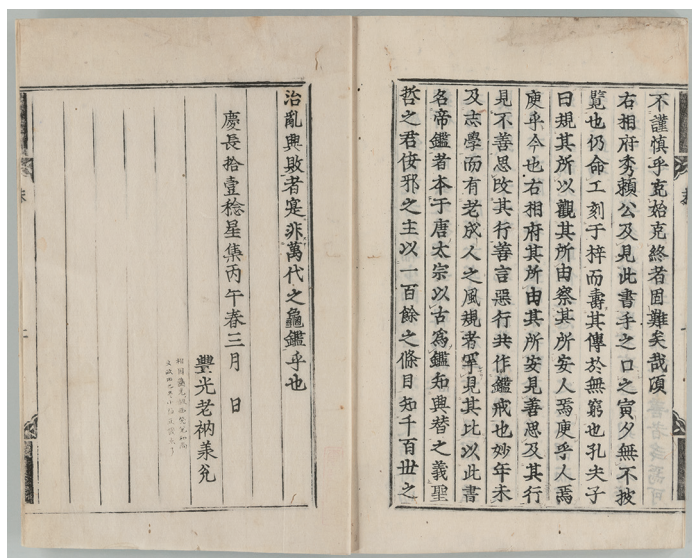 不謹慎乎克始克終者固難矣哉頃
右相府秀賴公及見此書手之口之寅夕無不披
覽也仍命工刻于梓而壽其傳於無窮也孔夫子
曰視其所以觀其所由察其所安人焉廋乎人焉
廋乎今也右相府其所由其所安見善思及其行
見不善思改其行善言惡行共作鑑戒也妙年未
及志學而有老成人之風規者罕見其比以此書
名帝鑑者本于唐太宗以古爲鑑知興替之義聖
哲之君佞邪之主以一百餘之條目知千百世之
治亂興敗者寔非萬代之龜鑑乎也
慶長拾壹稔星集丙午春三月 日
豐光老衲兼兊